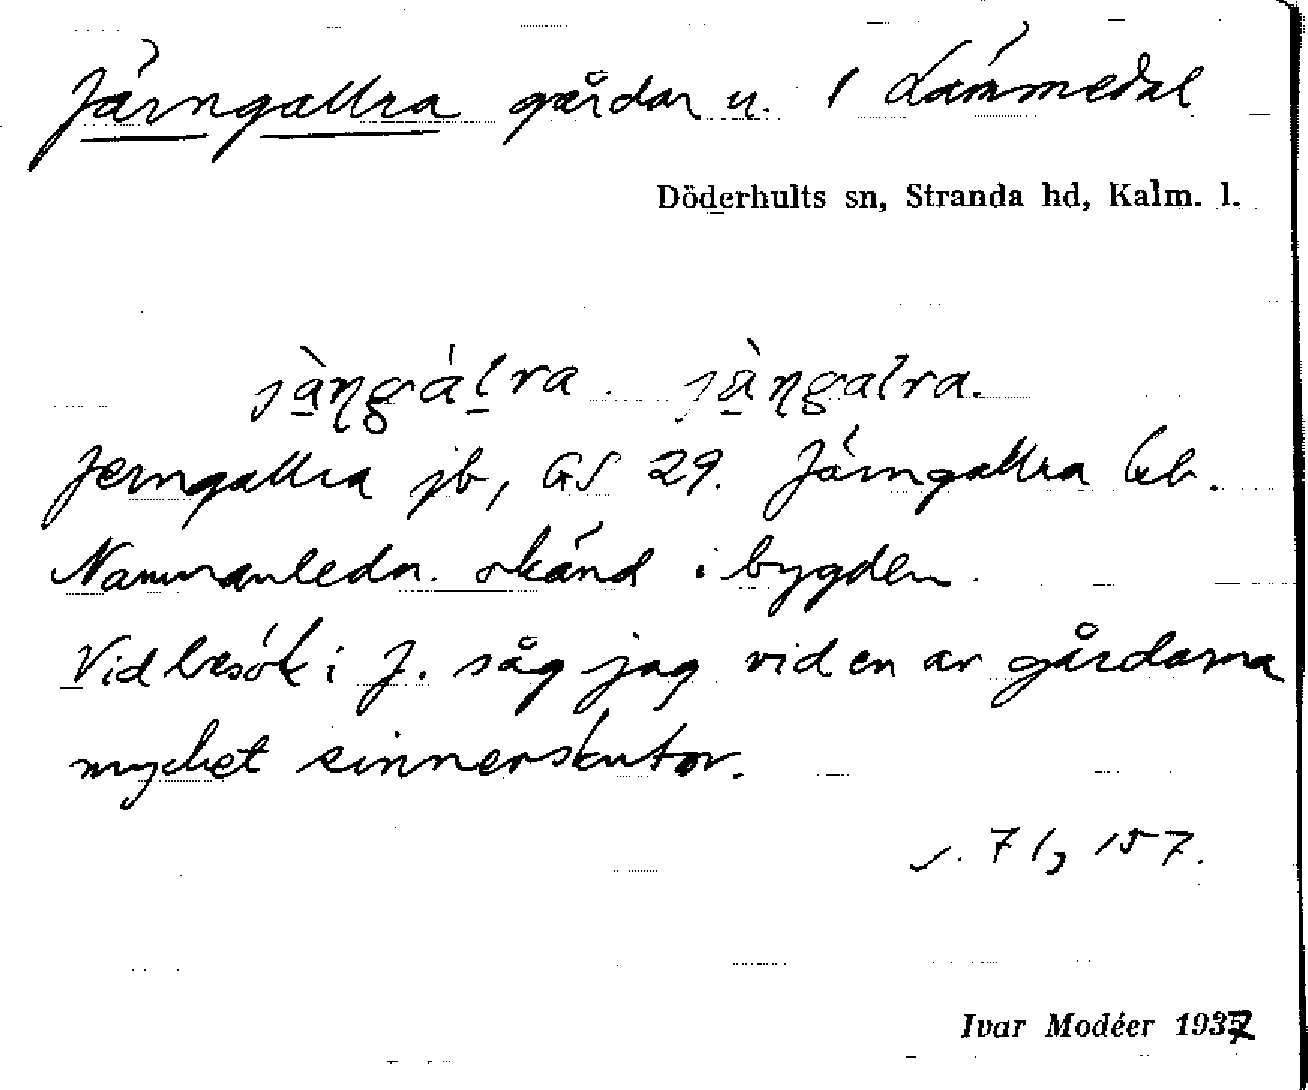 Järngallra gårdar u. 1 Lämmedal
Döderhults sn, Stranda hd, Kalm. l.
jàŋgálra. jàŋgalra.
Jerngallra jb, GS 29. Järngallra Geb.
Namnanledn. okänd i bygden.
Vid besök i J. såg jag vid en av gårdarna
mycket sinnerskutor.
s. 71, 157.
Ivar Modéer 1937